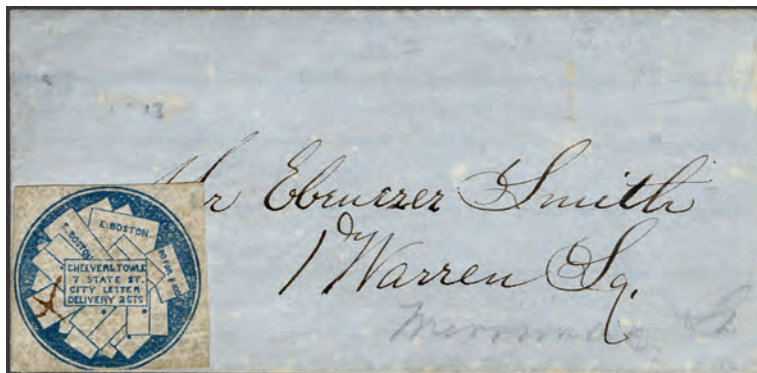 Mr Ebenezer Smith
1 Warren Sq.
St
E. BOSTON
E. BOSTON
CHEEVER & TOWLE
7 STATE ST.
CITY LETTER
DELIVERY 2 CTS